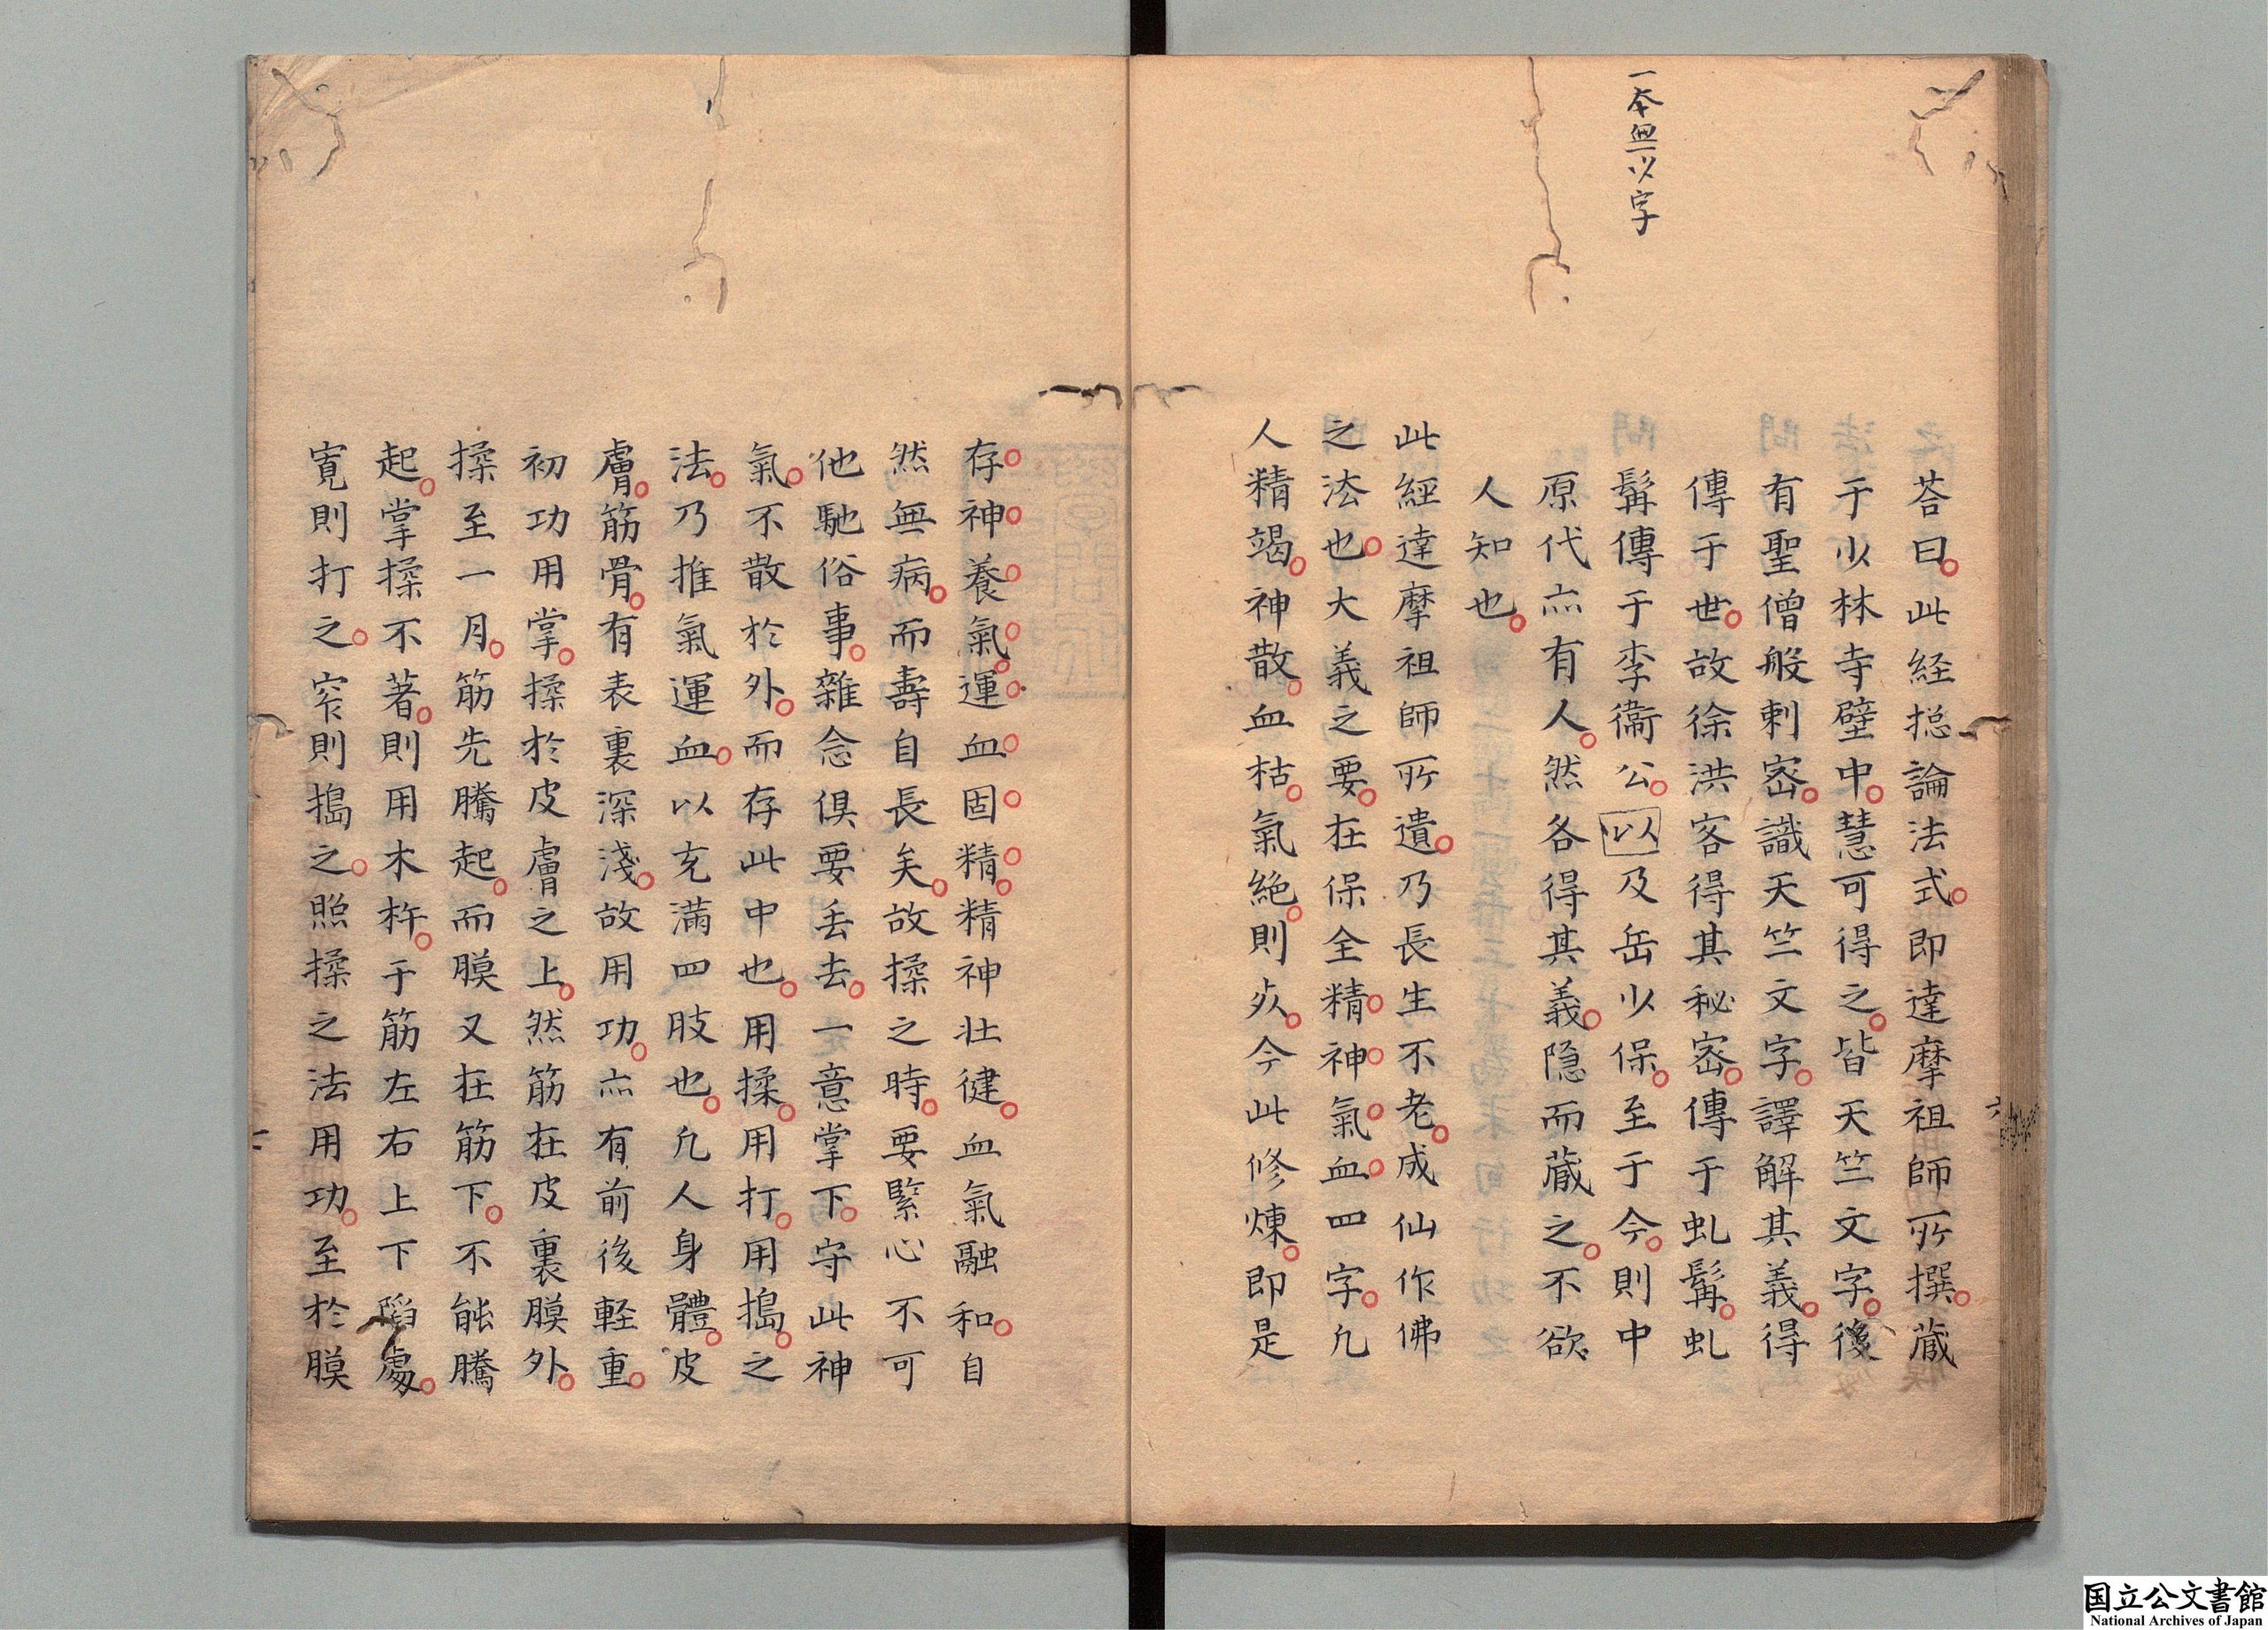 一本無以字
荅曰此経捴論法式即達摩祖師所撰蔵
于少林寺壁中慧可得之皆天竺文字後
有聖僧般剌宻識天竺文字譯解其義得
傳于世故徐洪客得其秘宻傳于虬髯虬
髯傳于李衞公以及岳少保至于今則中
原代亦有人然各得其義隐而蔵之不欲
人知也
此經達摩祖師所遺乃長生不老成仙作佛
之法也大義之要在保全精神氣血四字凢
人精竭神散血枯氣絶則死今此修煉即是
存神養氣運血固精精神壮健血氣融和自
然無病而壽自長矣故揉之時要緊心不可
他馳俗事雜念俱要丢去一意掌下守此神
氣不散於外而存此中也用揉用打用搗之
法乃推氣運血以充滿四肢也凢人身體皮
膚筋骨有表裏深淺故用功亦有前後軽重
初功用掌揉於皮膚之上然筋在皮裏膜外
揉至一月筋先騰起而膜又在筋下不能騰
起掌揉不著則用木杵于筋左右上下䧟處
寛則打之窄則搗之照揉之法用功至於膜
国立公文書館
National Archives of Japan